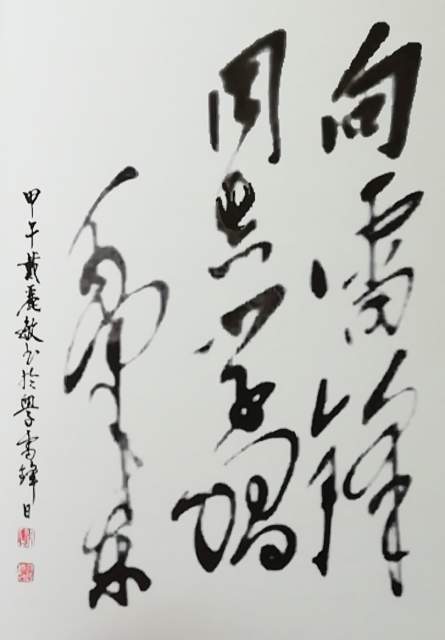 向雷鋒
同志学習
毛澤东
甲午戴麗敏书於學雷鋒日